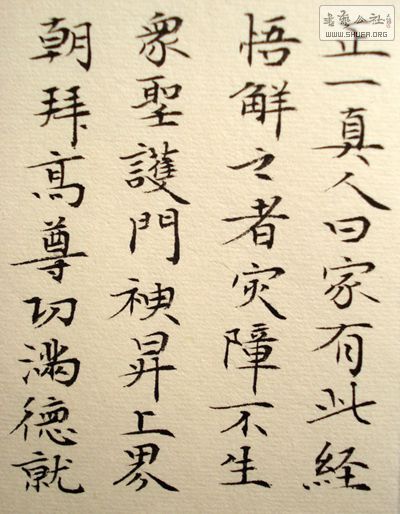 正一真人曰家有此経
悟解之者灾障不生
衆聖護門神昇上界
朝拜髙尊功滿德就
書藝公社
WWW.SHUFA.ORG